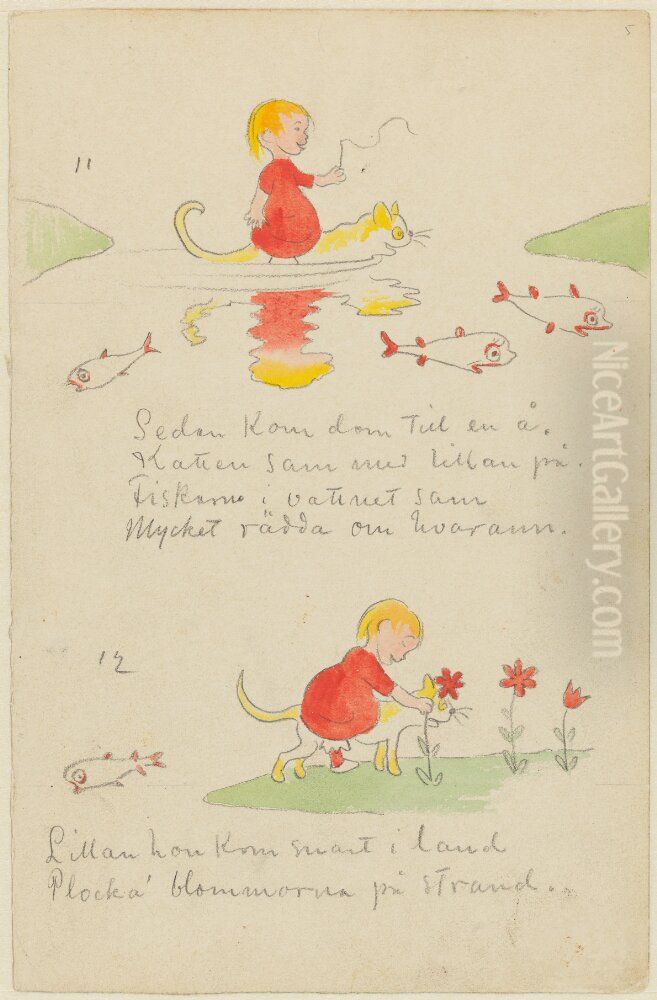 5
11
Sedan kom dom till en å.
Katten sam med lillan på.
Fiskarne i vattnet sam
Mycket rädda om hvarann.
12
Lillan hon kom snart i land
Plocka' blommorna på strand.
NiceArtGallery.com